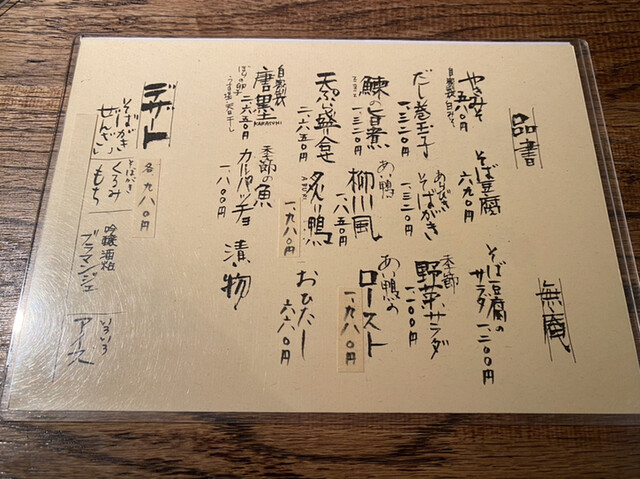 品書
無庵
やきみそ
自家製白みそ
五八〇円
そば豆腐
六九〇円
そば豆腐の
サラダ
一、二〇〇円
だし巻玉子
一、三二〇円
あらびき
そばがき
一、三二〇円
季節
野菜サラダ
一、一〇〇円
鰊の旨煮
一、三二〇円
あい鴨
柳川風
一、八五〇円
あい鴨の
ロースト
一、九八〇円
天ぷら盛合
二、六五〇円
炙り鴨
一、九八〇円
おひたし
六六〇円
自家製
唐墨
KARASUMI
ぼらの卵
一、六五〇円
季節の魚
カルパッチョ
一、八〇〇円
漬物
デザート
各九八〇円
そばがき
ぜんざい
そばがき
くるみ
もち
吟醸酒粕
ブラマンジェ
いろいろ
アイス